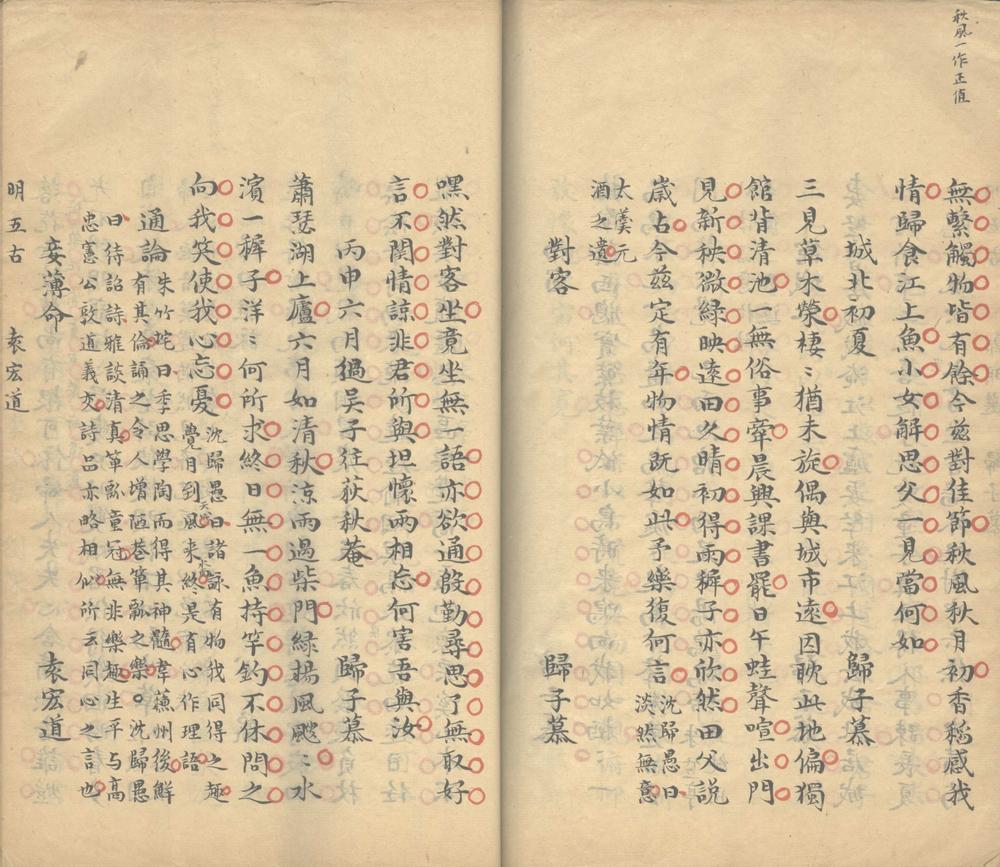 秋風一作正值
無繫觸物皆有餘今茲對佳節秋風秋月初香稻感我
情歸食江上魚小女解思父一見當何如
城北初夏 歸子慕
三見草木榮棲〻猶未旋偶與城市遠因耽此地偏獨
館背清池一無俗事牽晨興課書罷日午蛙聲喧出門
見新秧微綠映遠田久晴初得雨穉子亦欣然田父說
歲占今茲定有年物情既如此予樂復何言 沈歸愚曰
淡然無意
太羹元
酒之遺
對客 歸子慕
嘿然對客坐竟坐無一語亦欲通殷勤尋思了無取好
言不關情諒非君所與坦懷兩相忘何害吾與汝
丙申六月過吳子往荻秋菴 歸子慕
蕭瑟湖上廬六月如清秋涼雨過柴門綠楊風颼〻水
濱一穉子洋〻何所求終日無一魚持竿釣不休問之
向我笑使我心忘憂 沈歸愚曰諸詠有物我同得之趣
覺月到天心風來水面終是有心作理語
通論 朱竹垞曰季思學陶而得其神髓韋蘇州後鮮
有其倫誦之令人增陋巷簞瓢之樂。沈歸愚
曰待詔詩雅談清真簞瓢童冠無非樂趣生平与高
忠憲公敦道義交詩品亦略相似所云同心之言也
妾薄命 袁宏道
明五古 袁宏道